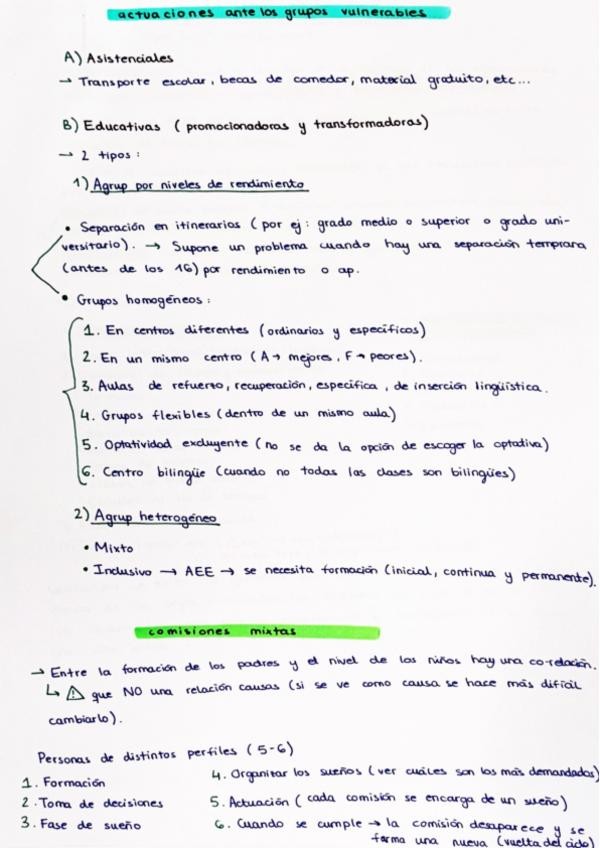 actuaciones ante los grupos vulnerables
A) Asistenciales
→ Transporte escolar, becas de comedor, material gratuito, etc...
B) Educativas (promocionadoras y transformadoras)
→ 2 tipos:
1) Agrup por niveles de rendimiento
• Separación en itinerarios (por ej: grado medio o superior o grado uni-
versitario). → Supone un problema cuando hay una separación temprana
(antes de los 16) por rendimiento o ap.
• Grupos homogéneos:
1. En centros diferentes (ordinarios y específicos)
2. En un mismo centro (A → mejores, F → peores).
3. Aulas de refuerzo, recuperación, específica, de inserción lingüística.
4. Grupos flexibles (dentro de un mismo aula)
5. Optatividad excluyente (no se da la opción de escoger la optativa)
6. Centro bilingüe (cuando no todas las clases son bilingües)
2) Agrup heterogéneo
• Mixto
• Inclusivo → AEE → se necesita formación (inicial, continua y permanente).
comisiones mixtas
→ Entre la formación de los padres y el nivel de los niños hay una co-relación.
↳ ⚠ que NO una relación causas (si se ve como causa se hace más difícil
cambiarlo).
Personas de distintos perfiles (5-6)
1. Formación
2. Toma de decisiones
3. Fase de sueño
4. Organizar los sueños (ver cuáles son los más demandados)
5. Actuación (cada comisión se encarga de un sueño)
6. Cuando se cumple → la comisión desaparece y se
forma una nueva (vuelta del ciclo)